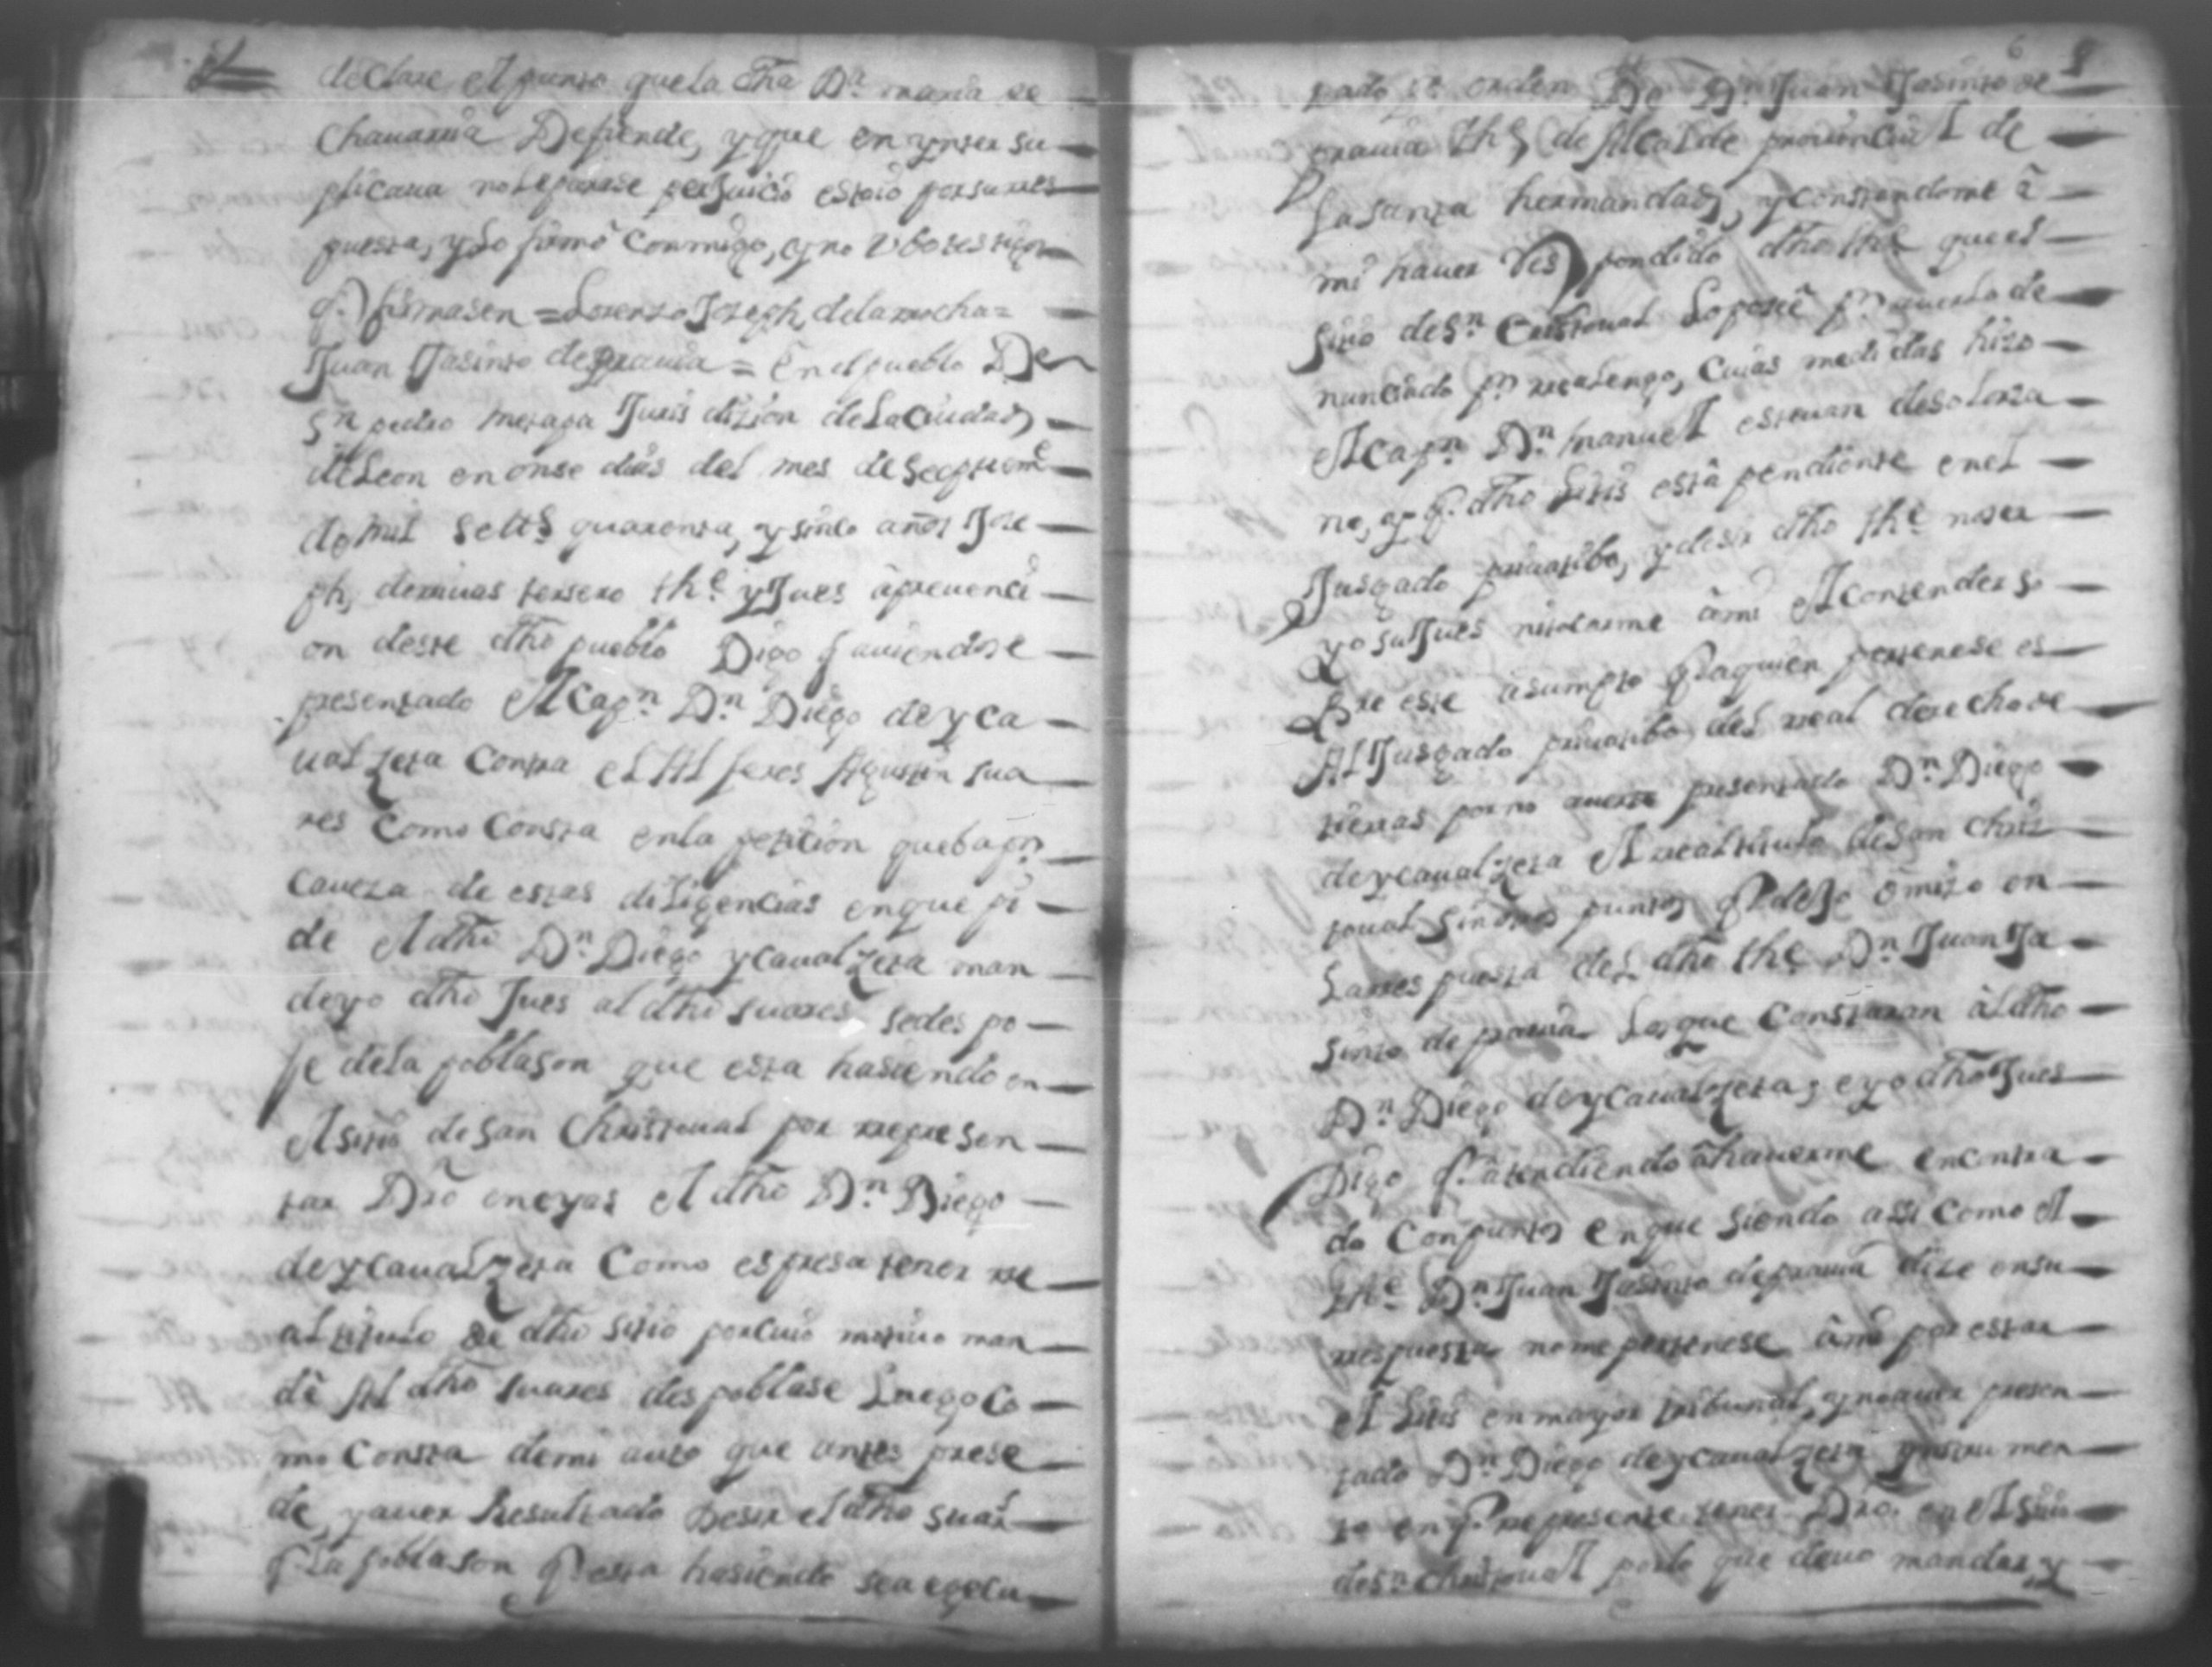 declare el punto que la dha Da. maria de
chauarria Defiende, y que en ynter su
plicaua no le parase perjuicio esto dio por su rres
puesta, y lo firmó conmigo, y no vbo testigos
q. firmasen = Lorenzo Joseph, de la rrocha =
Juan Jasinto de prauia = En el pueblo De
Sn. pedro metapa Jurisdizion de la Ciudad,
de Leon en onse dias del mes de Septieme.
de mil Setes. quarenta, y sinco años Jose
ph, de rriuas tersero the. y Jues á preuenci
on deste dho pueblo Digo q auiendose
presentado El Capn. Dn. Diego de yca
ualzeta contra el Alferes Agustin sua
res como consta en la peticion que ba pr.
caueza de estas diligencias en que pi
de El dho Dn. Diego ycaualzeta man
de yo dho Jues al dho suares se des po
je de la poblason que esta hasiendo en
El sitio de San Christoual por rrepresen
tar Dro en eyas El dho Dn. Diego
de ycaualzeta Como espresa tener rre
al titulo de dho sitio por cuio motiuo man
dé Al dho suares despoblase Luego co
mo consta de mi auto que antes prese
de, y auer Resultado desir el dho suars.
q la poblason q. esta hasiendo sea egecu
6 8
tado pr. orden De Dn. Juan Jasinto de
prauia the, de Alcalde prouincial de
La santa hermandad, y constandome á
mi hauer Respondido dho the. que el
sitio de Sn. Cristoual Lo poseê pr. auerlo de
nunciado pr. rrealengo, Cuias medidas hizo
El Capn. Dn. Manuel esteuan de solorza
no, y q. dho Litis está pendiente en el
Jusgado priuatibo, y desir dho the. no ser
yo su Jues ni tocarme â mi El contender so
bre este asumpto q. a quien pertenese es
Al Jusgado priuatibo del rreal derecho de
tierras por no auerse presentado Dn. Diego
de ycaualzeta El real titulo de San Chris
toual sin otros puntos q. dejo omiso en
La rrespuesta del dho the. Dn. Juan Ja
sinto de prauia Los que constaran al dho
Dn. Diego de ycaualzeta; e yo dho Jues
Digo q. atendiendo â hauerme encontra
do con puntos en que siendo assi como El
the. Dn. Juan Jasinto de prauia dize en su
rrespuesta no me pertenese â mi por estar
El Litis en mayor tribunal, y no auer presen
tado Dn. Diego de ycaualzeta ynstrumen
to en q. rrepresente tener Dro. en El sitio
de Sn. Christoual por lo que deuo mandar, y